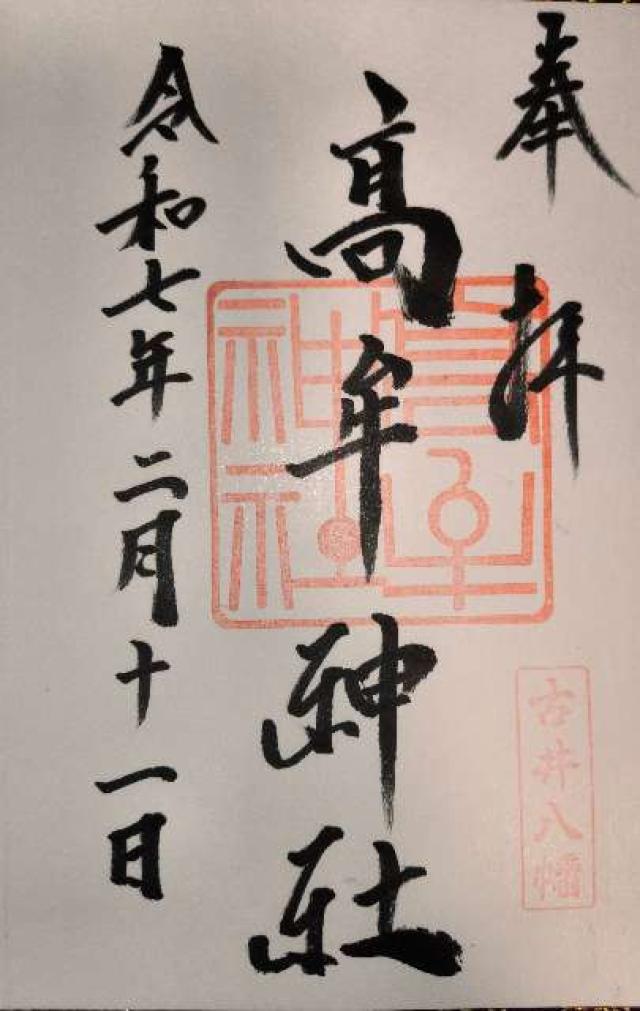 奉拝
古井八幡
高牟神社
高牟神社
令和七年二月十一日